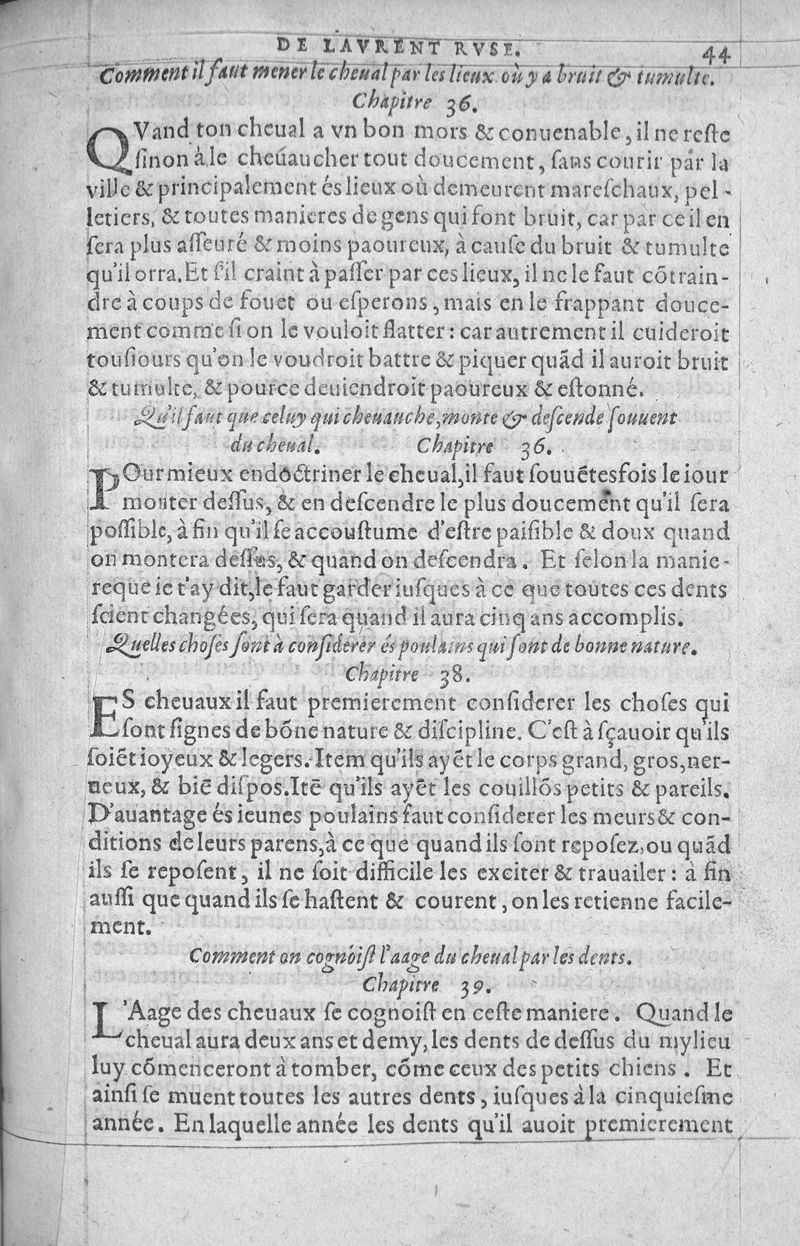 DE LAVRENT RVSE. 44
Comment il faut mener le cheual par les lieux où y a bruit & tumulte.
Chapitre 36.
QVand ton cheual a vn bon mors & conuenable, il ne reſte
ſinon à le cheuaucher tout doucement, ſans courir par la
ville & principalement és lieux où demeurent mareſchaux, pel-
letiers, & toutes manieres de gens qui font bruit, car par ce il en
ſera plus aſſeuré & moins paoureux, à cauſe du bruit & tumulte
qu'il orra. Et ſ'il craint à paſſer par ces lieux, il ne le faut cõtrain-
dre à coups de fouet ou eſperons, mais en le frappant douce-
ment comme ſi on le vouloit flatter: car autrement il cuideroit
touſiours qu'on le voudroit battre & piquer quãd il auroit bruit
& tumulte, & pource deuiendroit paoureux & eſtonné.
Qu'il faut que celuy qui cheuauche, monte & deſcende ſouuent
du cheual. Chapitre 36.
POur mieux endoctriner le cheual, il faut ſouuẽtesfois le iour
monter deſſus, & en deſcendre le plus doucement qu'il ſera
poſſible, à fin qu'il ſe accouſtume d'eſtre paiſible & doux quand
on montera deſſus, & quand on deſcendra. Et ſelon la manie-
re que ie t'ay dit, le faut garder iuſques à ce que toutes ces dents
ſcient changées, qui ſera quand il aura cinq ans accomplis.
Quelles choſes ſont à conſiderer és poulains qui ſont de bonne nature.
Chapitre 38.
ES cheuaux il faut premierement conſiderer les choſes qui
ſont ſignes de bõne nature & diſcipline. C'eſt à ſçauoir qu'ils
ſoiẽt ioyeux & legers. Item qu'ils ayẽt le corps grand, gros, ner-
ueux, & biẽ diſpos. Itẽ qu'ils ayẽt les couillõs petits & pareils.
D'auantage és ieunes poulains faut conſiderer les meurs & con-
ditions de leurs parens, à ce que quand ils ſont repoſez, ou quãd
ils ſe repoſent, il ne ſoit difficile les exciter & trauailer: à fin
auſſi que quand ils ſe haſtent & courent, on les retienne facile-
ment.
Comment on cognoiſt l'aage du cheual par les dents.
Chapitre 39.
L'Aage des cheuaux ſe cognoiſt en ceſte maniere. Quand le
cheual aura deux ans et demy, les dents de deſſus du mylieu
luy cõmenceront à tomber, cõme ceux des petits chiens. Et
ainſi ſe muent toutes les autres dents, iuſques à la cinquieſme
année. En laquelle année les dents qu'il auoit premierement